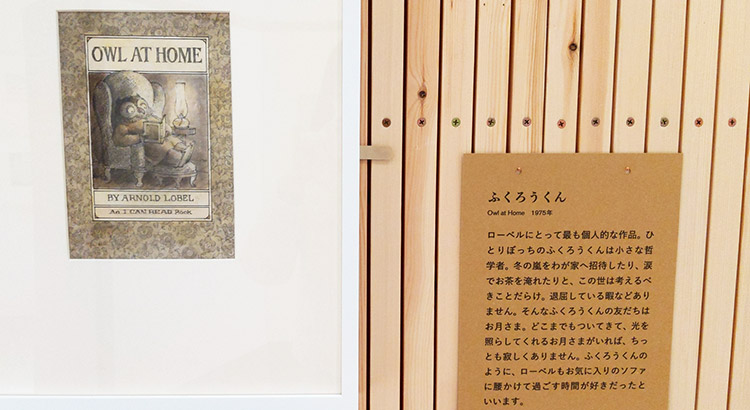 OWL AT HOME
BY ARNOLD LOBEL
An I CAN READ Book
ふくろうくん
Owl at Home 1975年
ローベルにとって最も個人的な作品。ひ
とりぼっちのふくろうくんは小さな哲
学者。冬の嵐をわが家へ招待したり、涙
でお茶を淹れたりと、この世は考えるべ
きことだらけ。退屈している暇などあり
ません。そんなふくろうくんの友だちは
お月さま。どこまでもついてきて、光を
照らしてくれるお月さまがいれば、ちっ
とも寂しくありません。ふくろうくんの
ように、ローベルもお気に入りのソファ
に腰かけて過ごす時間が好きだったと
いいます。